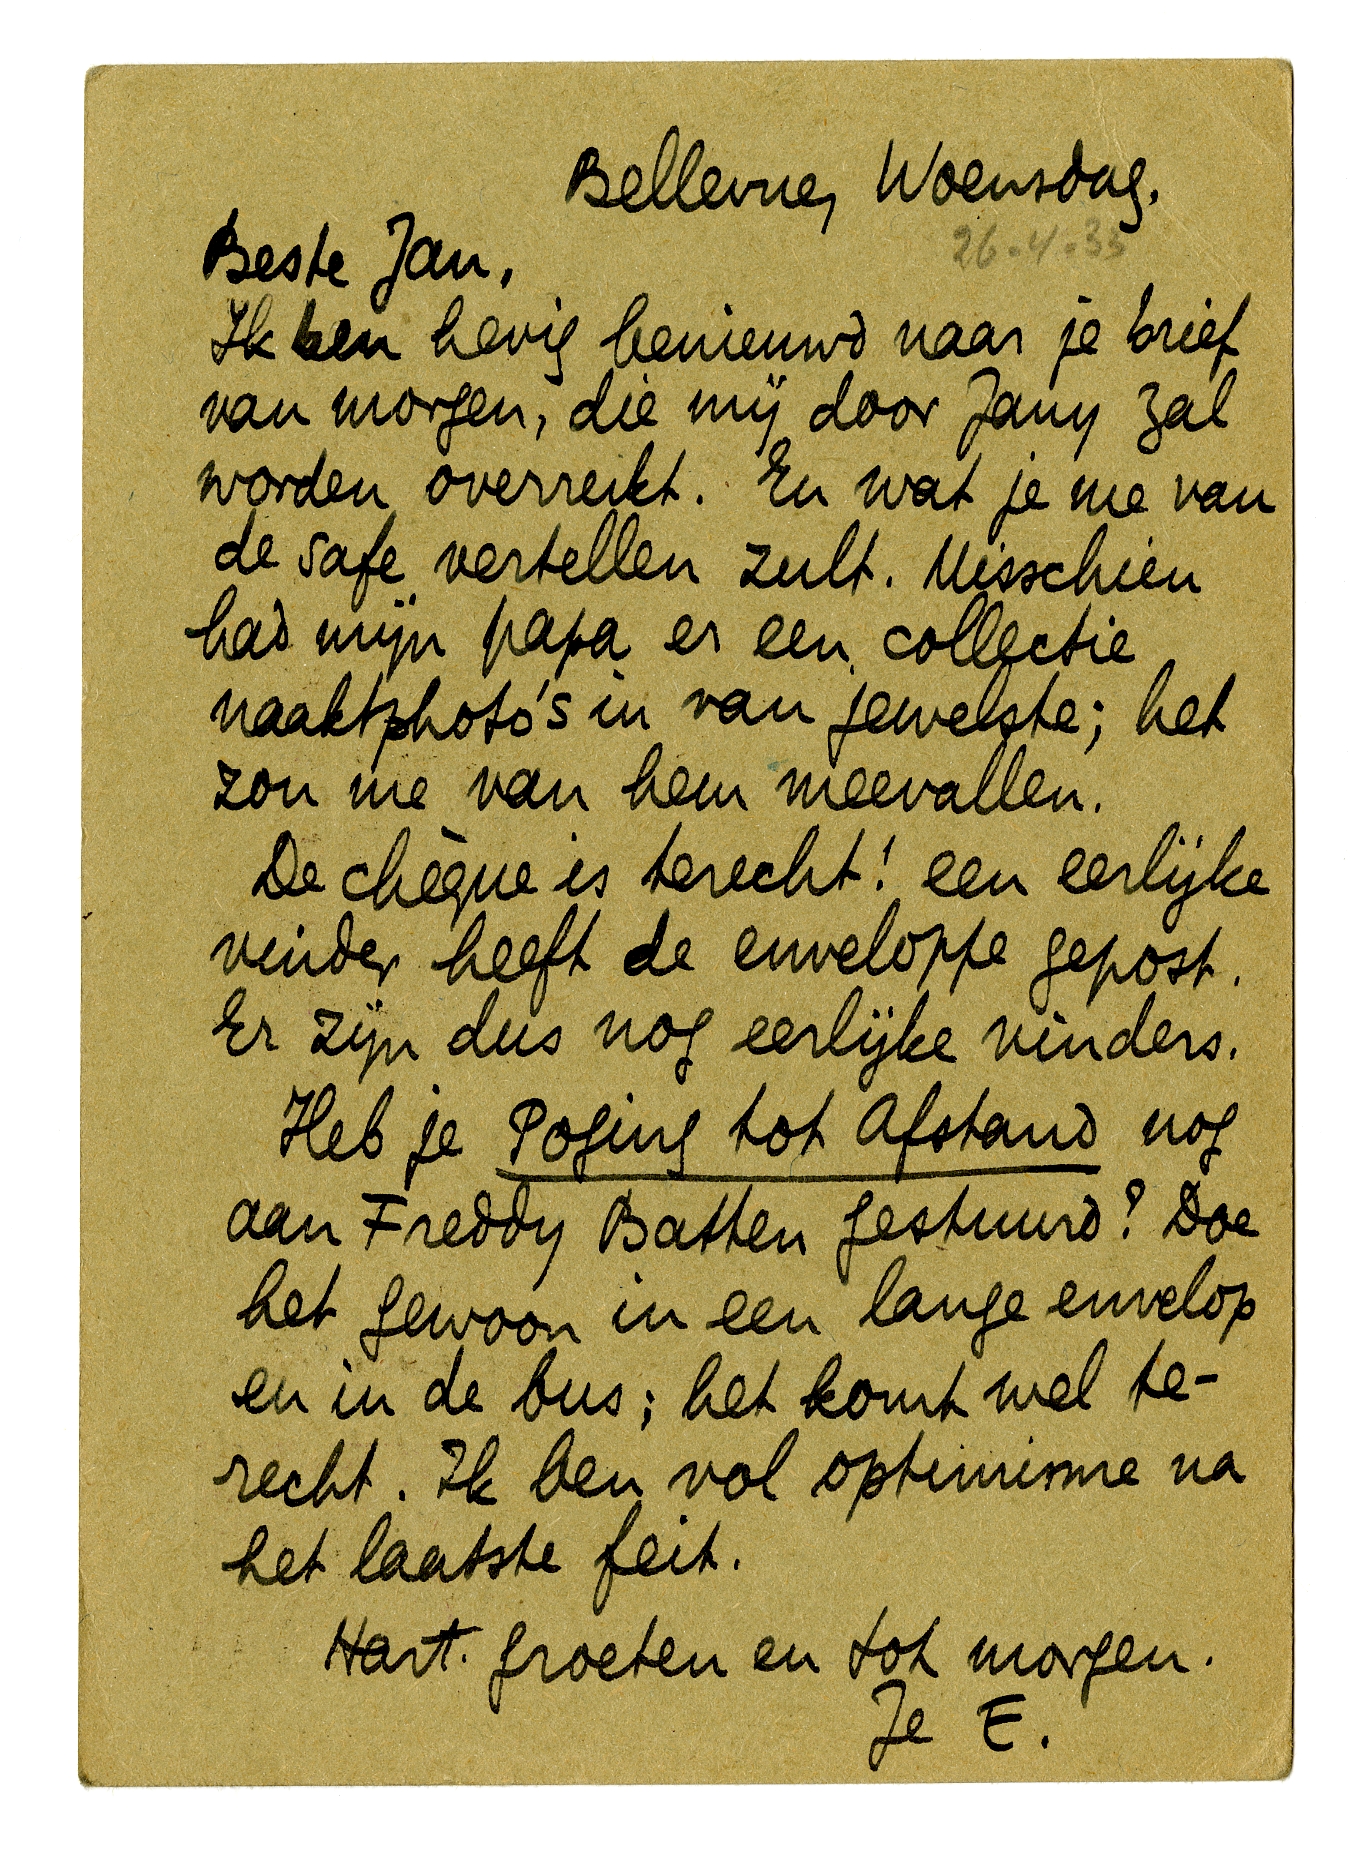 Bellevue, Woensdag.
26.4.33
Beste Jan,
Ik ben hevig benieuwd naar je brief
van morgen, die mij door Jany zal
worden overreikt. En wat je me van
de safe vertellen zult. Misschien
had mijn papa er een collectie
naaktphoto's in van jewelste; het
zou me van hem meevallen.
De chèque is terecht! een eerlijke
vinder heeft de enveloppe gepost.
Er zijn dus nog eerlijke vinders.
Heb je Poging tot Afstand nog
aan Freddy Batten gestuurd? Doe
het gewoon in een lange envelop
en in de bus; het komt wel te-
recht. Ik ben vol optimisme na
het laatste feit.
Hart. groeten en tot morgen.
Je E.